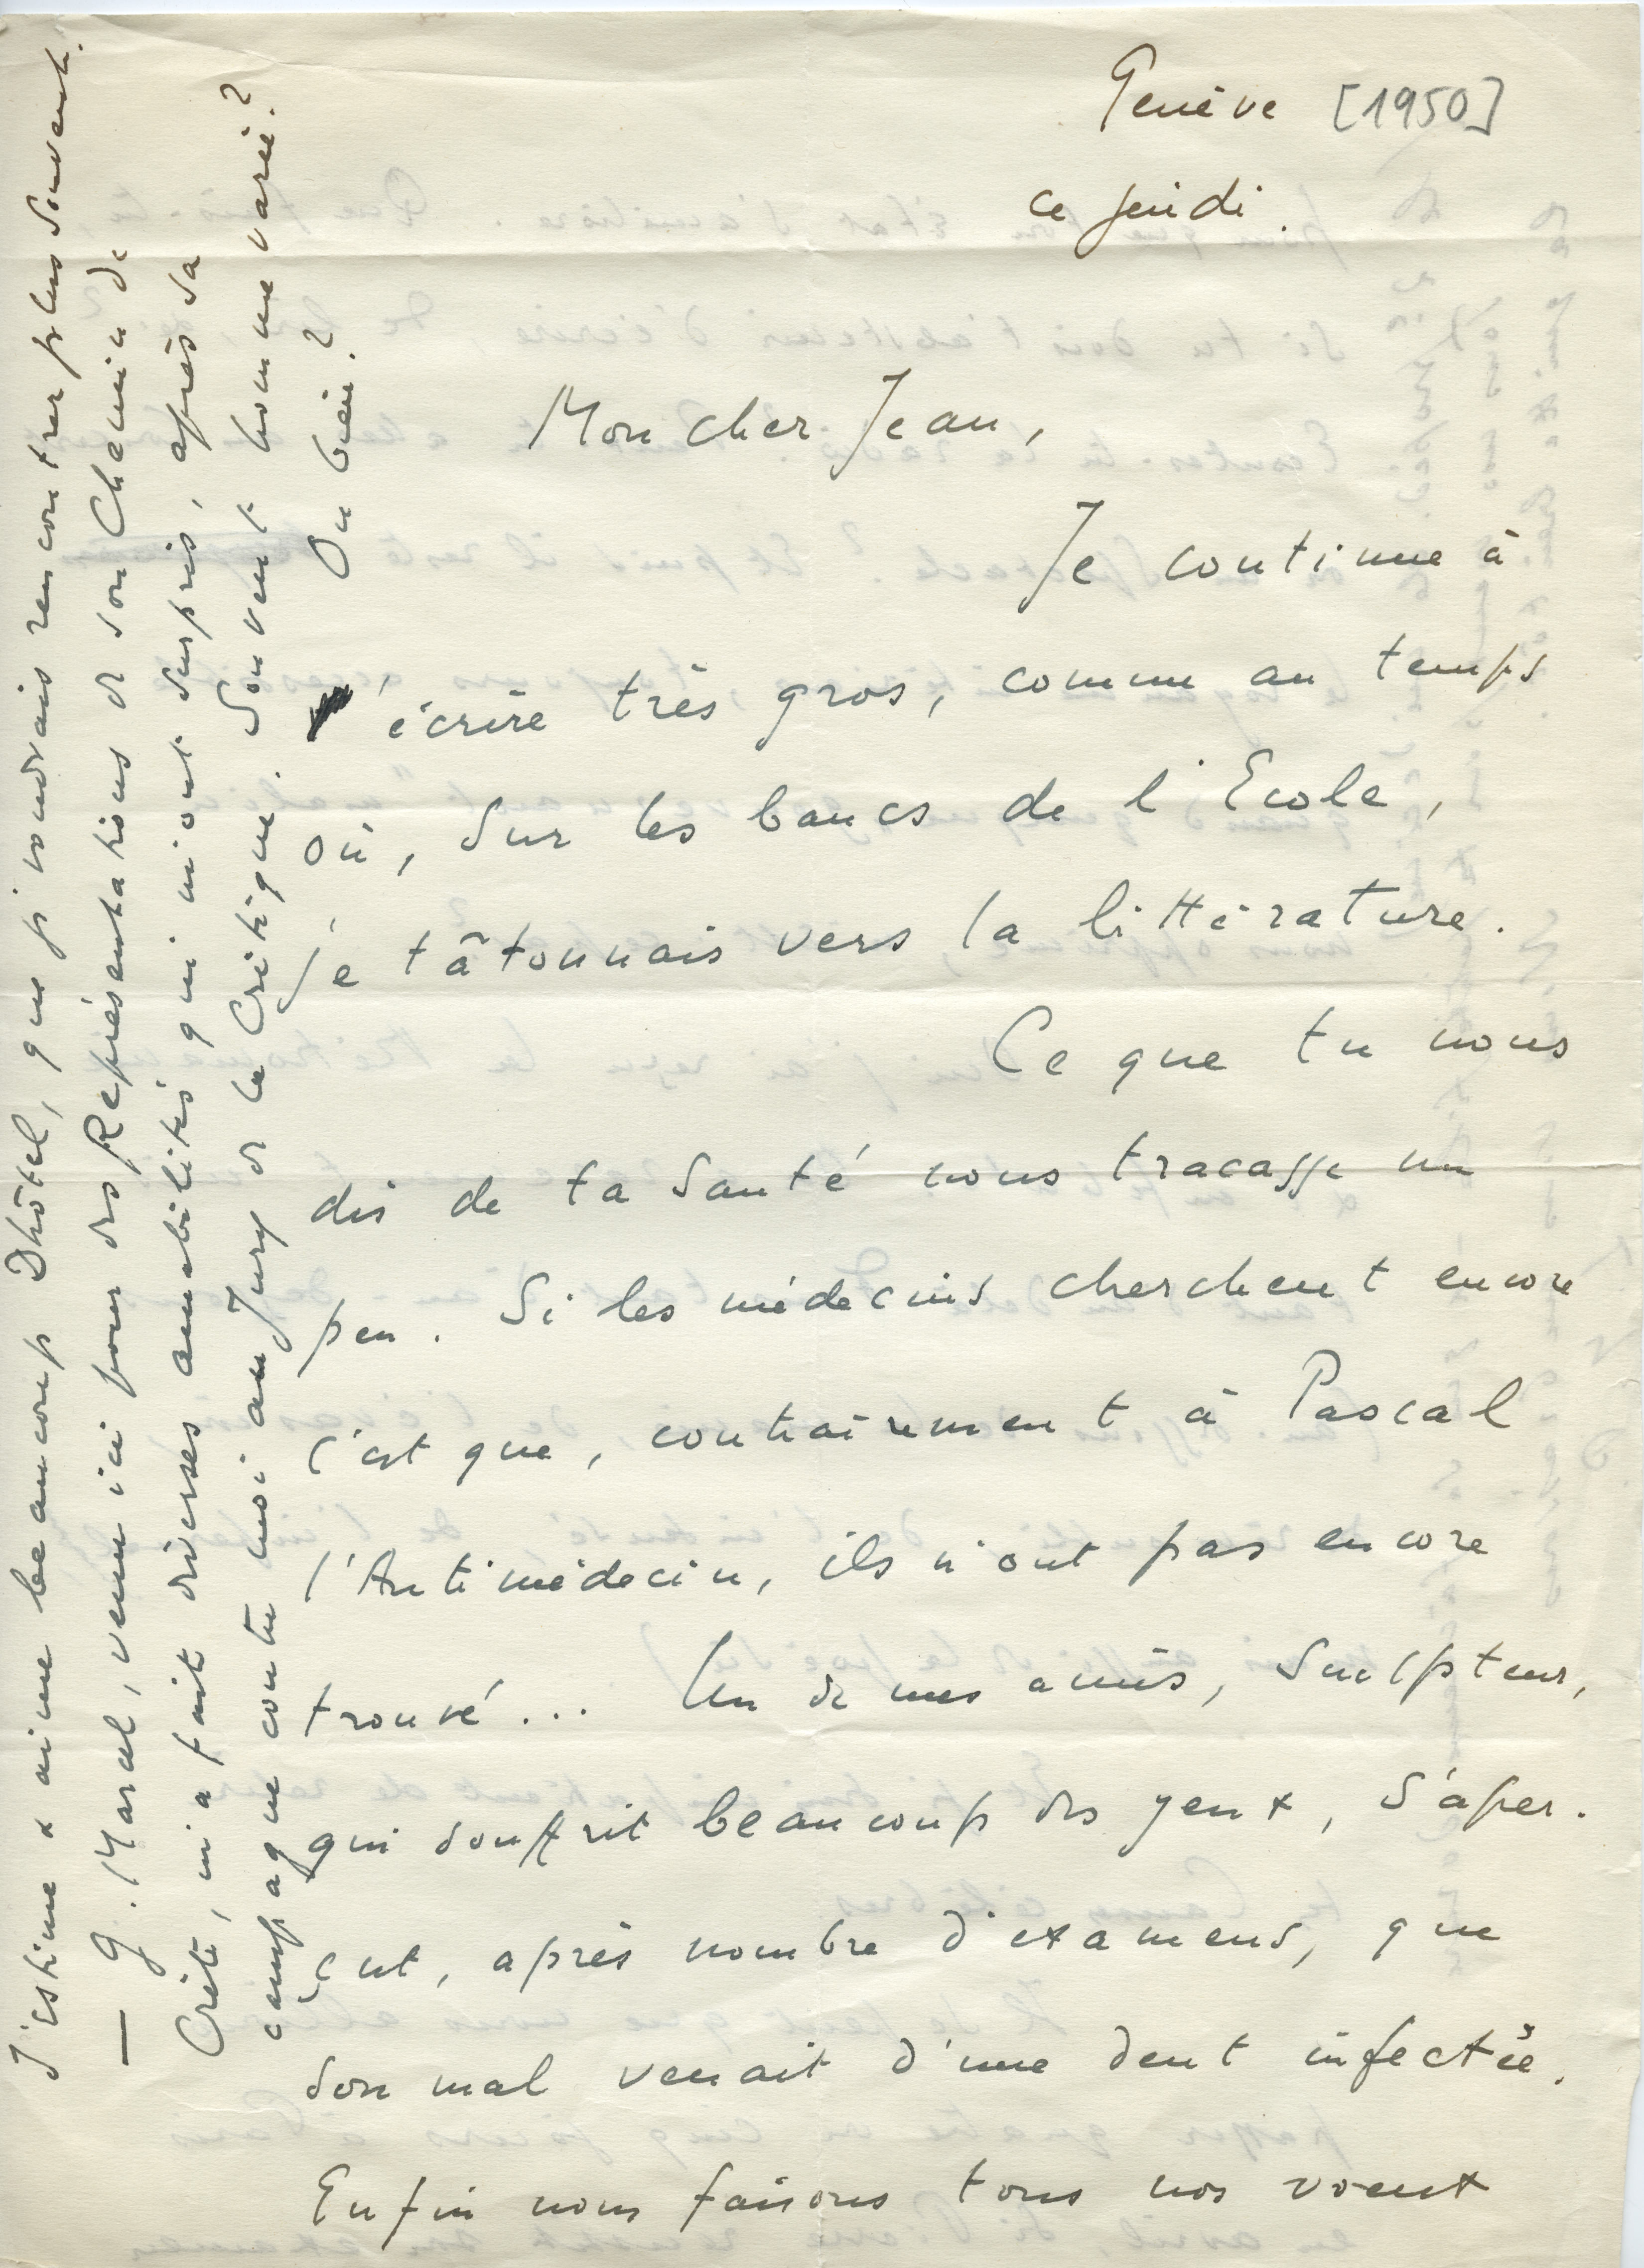 Genève [1950]
ce jeudi.
Mon cher Jean,
Je continue à
écrire très gros, comme au temps
où, sur les bancs de l'Ecole,
je tâtonnais vers la littérature.
Ce que tu nous
dis de ta santé nous tracasse un
peu. Si les médecins cherchent encore
c'est que, contrairement à Pascal
l'Antimédecin, ils n'ont pas encore
trouvé... Un de mes amis, sculpteur,
qui souffrit beaucoup des yeux, s'aper-
çut, après nombre d'examens, que
son mal venait d'une dent infectée.
Enfin nous faisons tous nos voeux
J'estime & aime beaucoup Dhôtel, que je voudrais rencontrer plus souvent.
— G. Marcel, venu ici pour des Représentations de son Chemin de
Crête, m'a fait diverses amabilités qui m'ont surpris, après sa
campagne contre moi au Jury de la Critique. Souvent homme varie?
Ou bien?